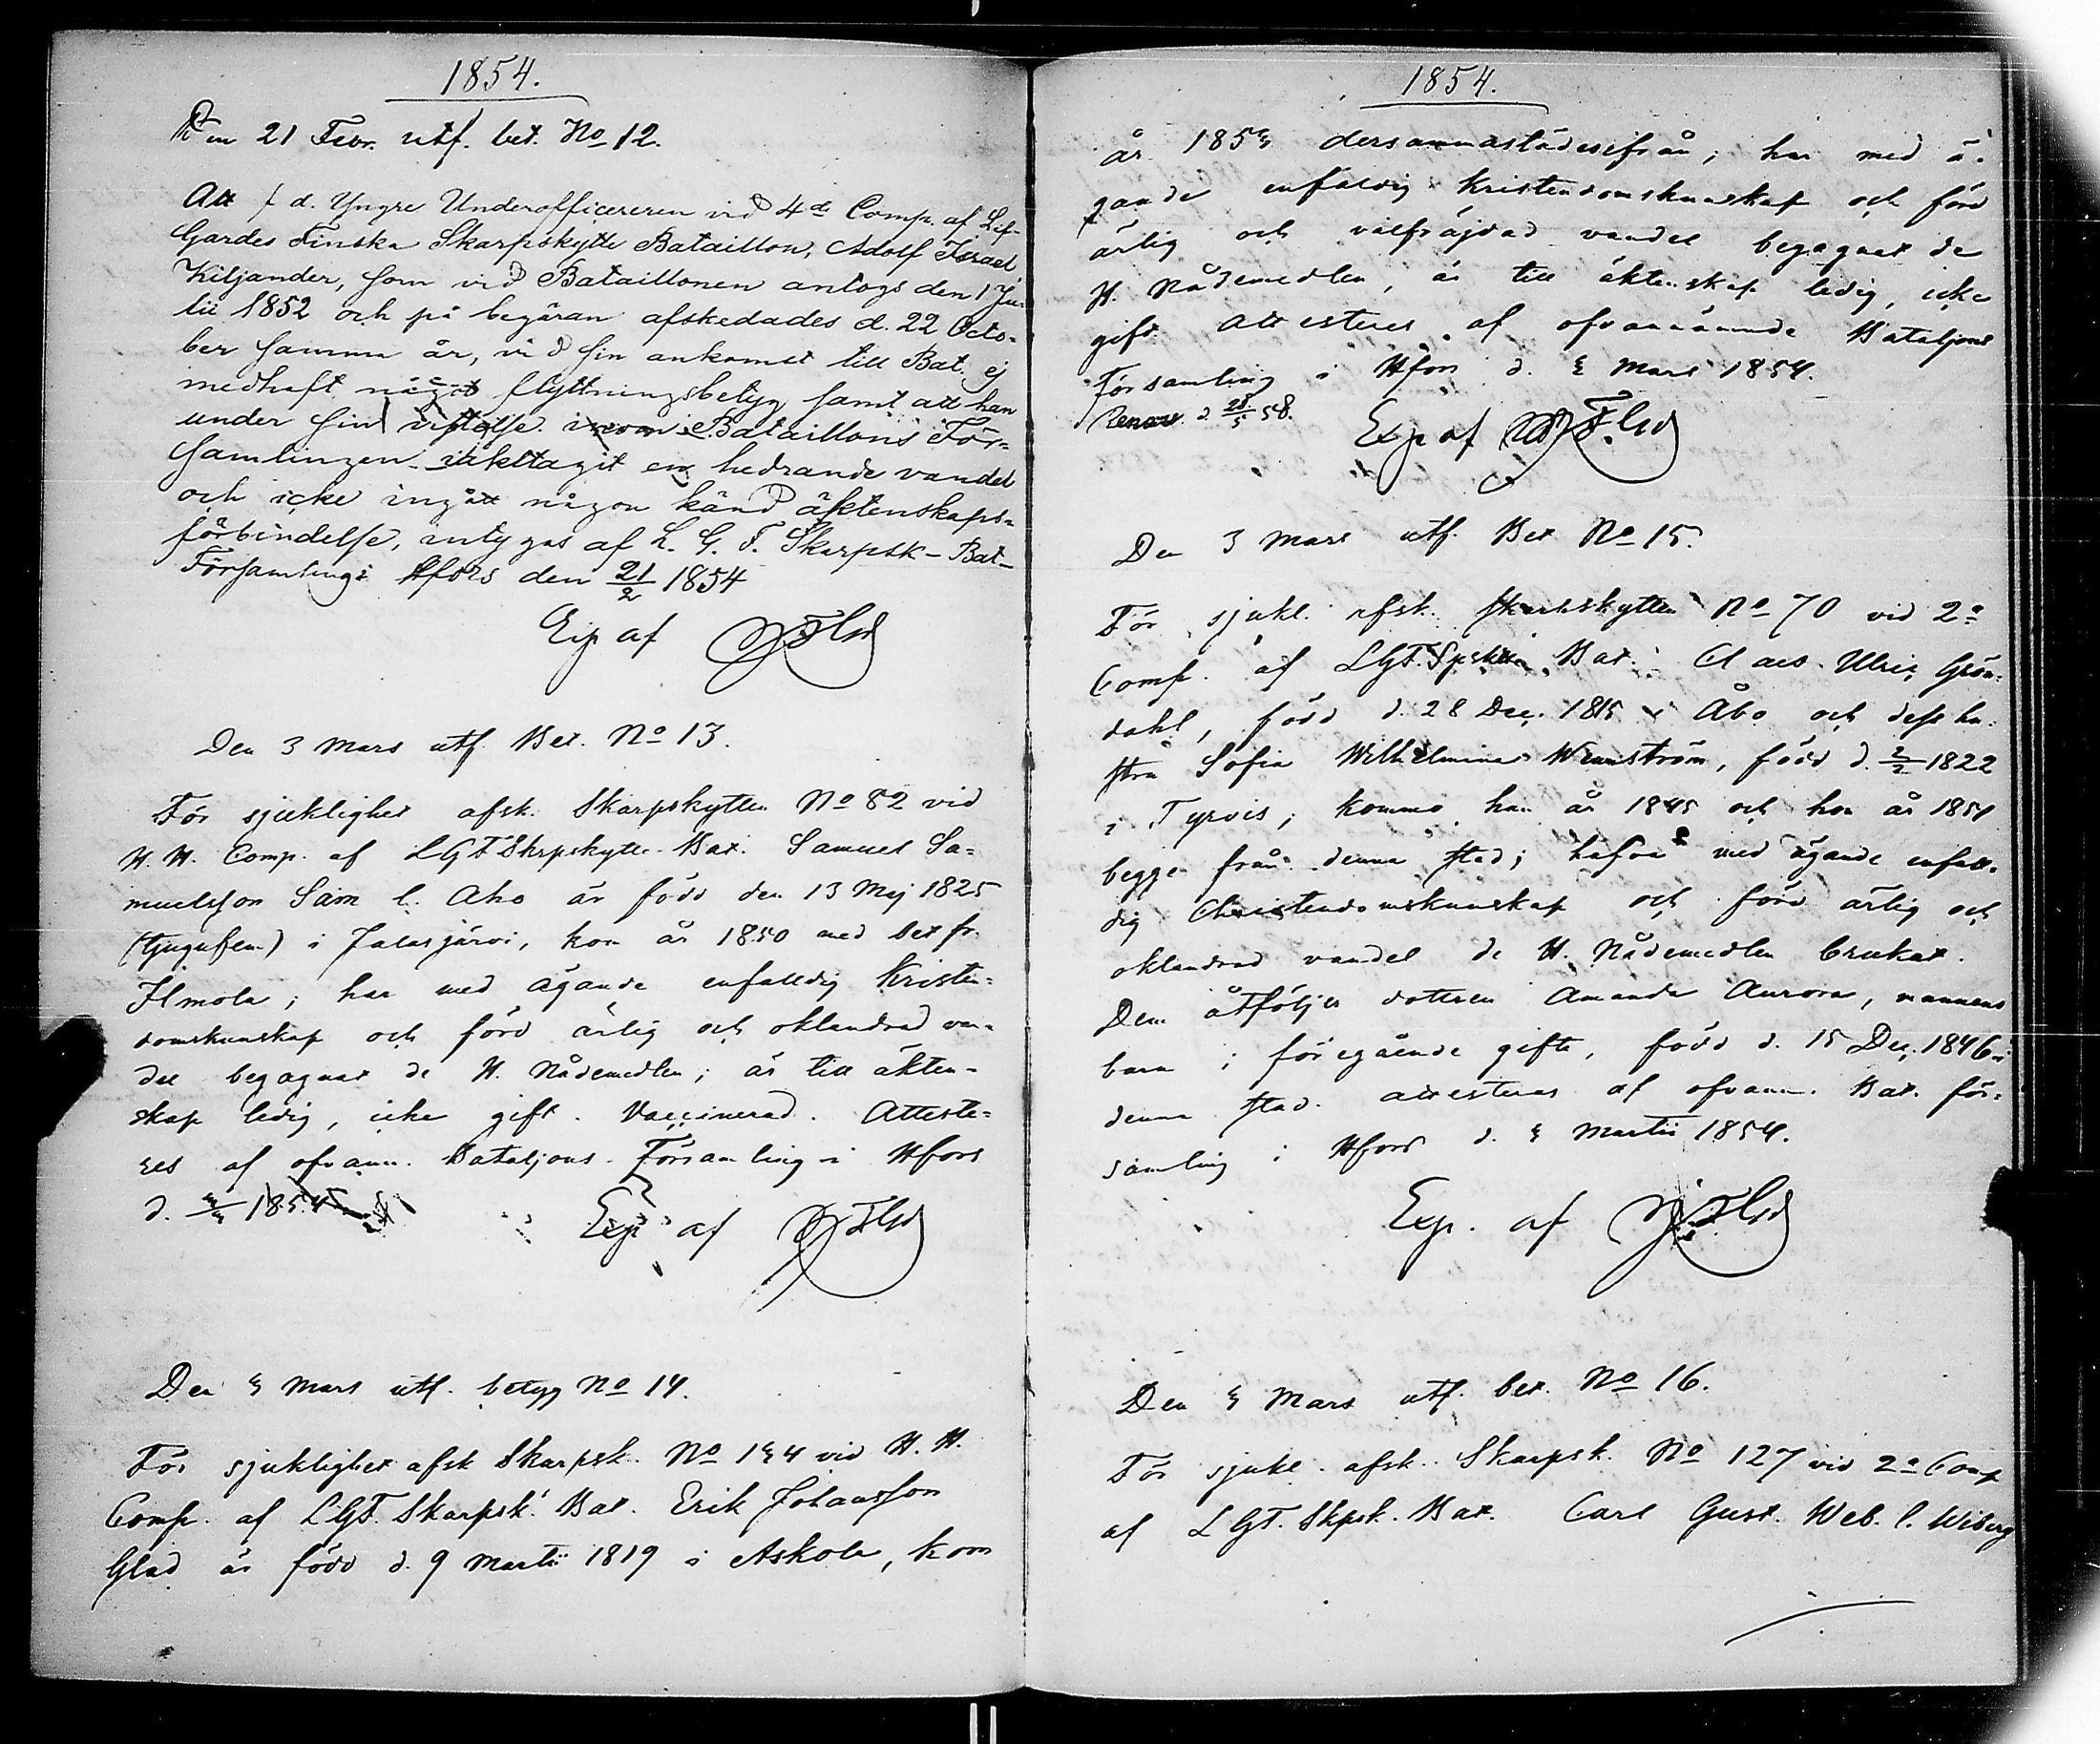 1854.
Den 21 Febr. utf. bet. No 12.
Att f d. Yngre Underofficereren vid 4de Comp. af Lif-
Gardes Finska Skarpskytte Bataillon, Adolf Israel
Kiljander, som vid Bataillonen antogs den 1 Ju-
lii 1852 och på begäran afskedades d. 22 Octo-
ber samma år, vid sin ankomst till Bat. ej
medhaft något flyttningsbetyg samt att han
under sin vistelse inom Bataillons För-
samlingen iakttagit en hedrande vandel
och icke ingått någon känd äktenskaps-
förbindelse, intygas af L. G. F. Skarpsk-Bat-
Församling i Hfors den 21/2 1854
Exp af
Den 3 Mars utf. Bet. No 13.
För sjuklighet afsk. Skarpskytten No 82 vid
H. H. Comp. af LGF Skrpskytte-Bat. Samuel Sa-
muelsson Sam l. Aho är född den 13 Maj 1825
(tjugufem) i Jalasjärvi, kom år 1850 med bet fr.
Ilmola; har med ägande enfalldig Kristen-
domskunskap och förd ärlig och oklandrad van-
del begagnat de H. Nådemedlen; är till äkten-
skap ledig, icke gift. Vaccinerad. Atteste-
res af ofvann. Bataljons-Församling i Hfors
d. 3/3 1854
Exp af
Den 3 Mars utf. betyg No 14.
För sjuklighet afsk Skarpsk. No 134 vid H. H.
Comp. af LGF. Skarpsk. Bat. Erik Johansson
Glad är född d. 9 Martii 1819 i Askola, kom
1854.
år 1853 dersammastädesifrån; har med ä-
gande enfaldig Kristendomskunskap och förd
ärlig och välfräjdad vandel begagnat de
H. Nådemedlen, är till äktenskap ledig, icke
gift. Attesteres af ofvannämnde Bataljons
Församling i Hfors d. 3 Mars 1854.
Renov. d. 28/5 58.
Exp af
Den 3 Mars utf. Bet No 15.
För sjukl. afsk. skarpskytten No 70 vid 2a
Comp. af LGF. Spskytte Bat. Claes Ulric Grön-
dahl, född d. 28 Dec. 1815 i Åbo och dess hu-
stru Sofia Wilhelmina Wennström, född d. 2/2 1822
i Tyrvis, kommo han år 1845 och hon år 1851
begge från denna stad; hafva med ägande enfall-
dig Christendomskunskap och förd ärlig och
oklandrad vandel de H. Nådemedlen brukat.
Dem åtföljer dottren Amanda Aurora, mannens
barn i föregående gifte, född d. 15 Dec. 1846 i
denna stad. Attesteras af ofvann. Bat. för-
samling i Hfors d. 3 Martii 1854.
Exp. af
Den 3 Mars utf. bet. No 16.
För sjukl. afsk. Skarpsk. No 127 vid 2a Comp
af LGF. Skpsk. Bat. Carl Gust. Web. l. Wiberg